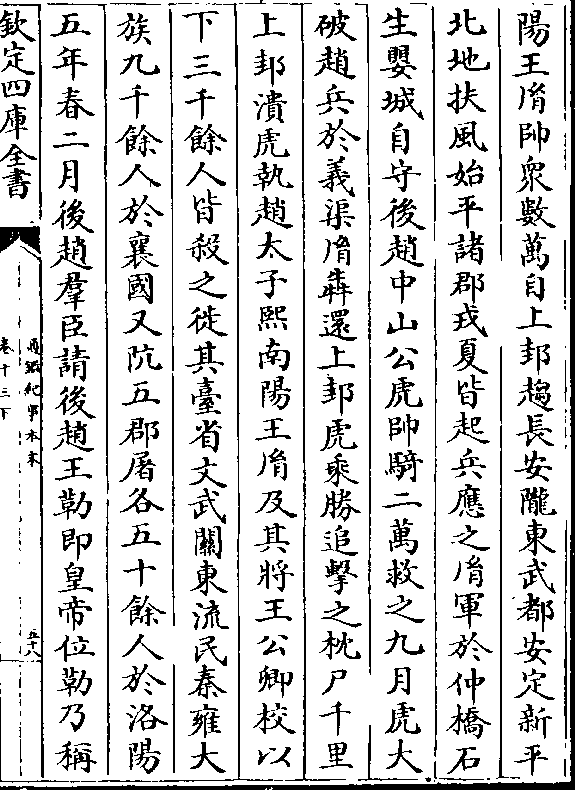 陽王𦙍帥衆數萬自上邽趨長安隴東武都安定新平
北地扶風始平諸郡戎夏皆起兵應之𦙍軍於仲橋石
生嬰城自守後趙中山公虎帥騎二萬救之九月虎大
破趙兵於義渠𦙍犇還上邽虎乘勝追擊之枕尸千里
上邽潰虎執趙太子熙南陽王𦙍及其將王公卿校以
下三千餘人皆殺之徙其臺省文武關東流民秦雍大
族九千餘人於襄國又阬五郡屠各五十餘人於洛陽
五年春二月後趙羣臣請後趙王勒即皇帝位勒乃稱
欽定四庫全書
通鑑紀事本末
卷十三下
五十八